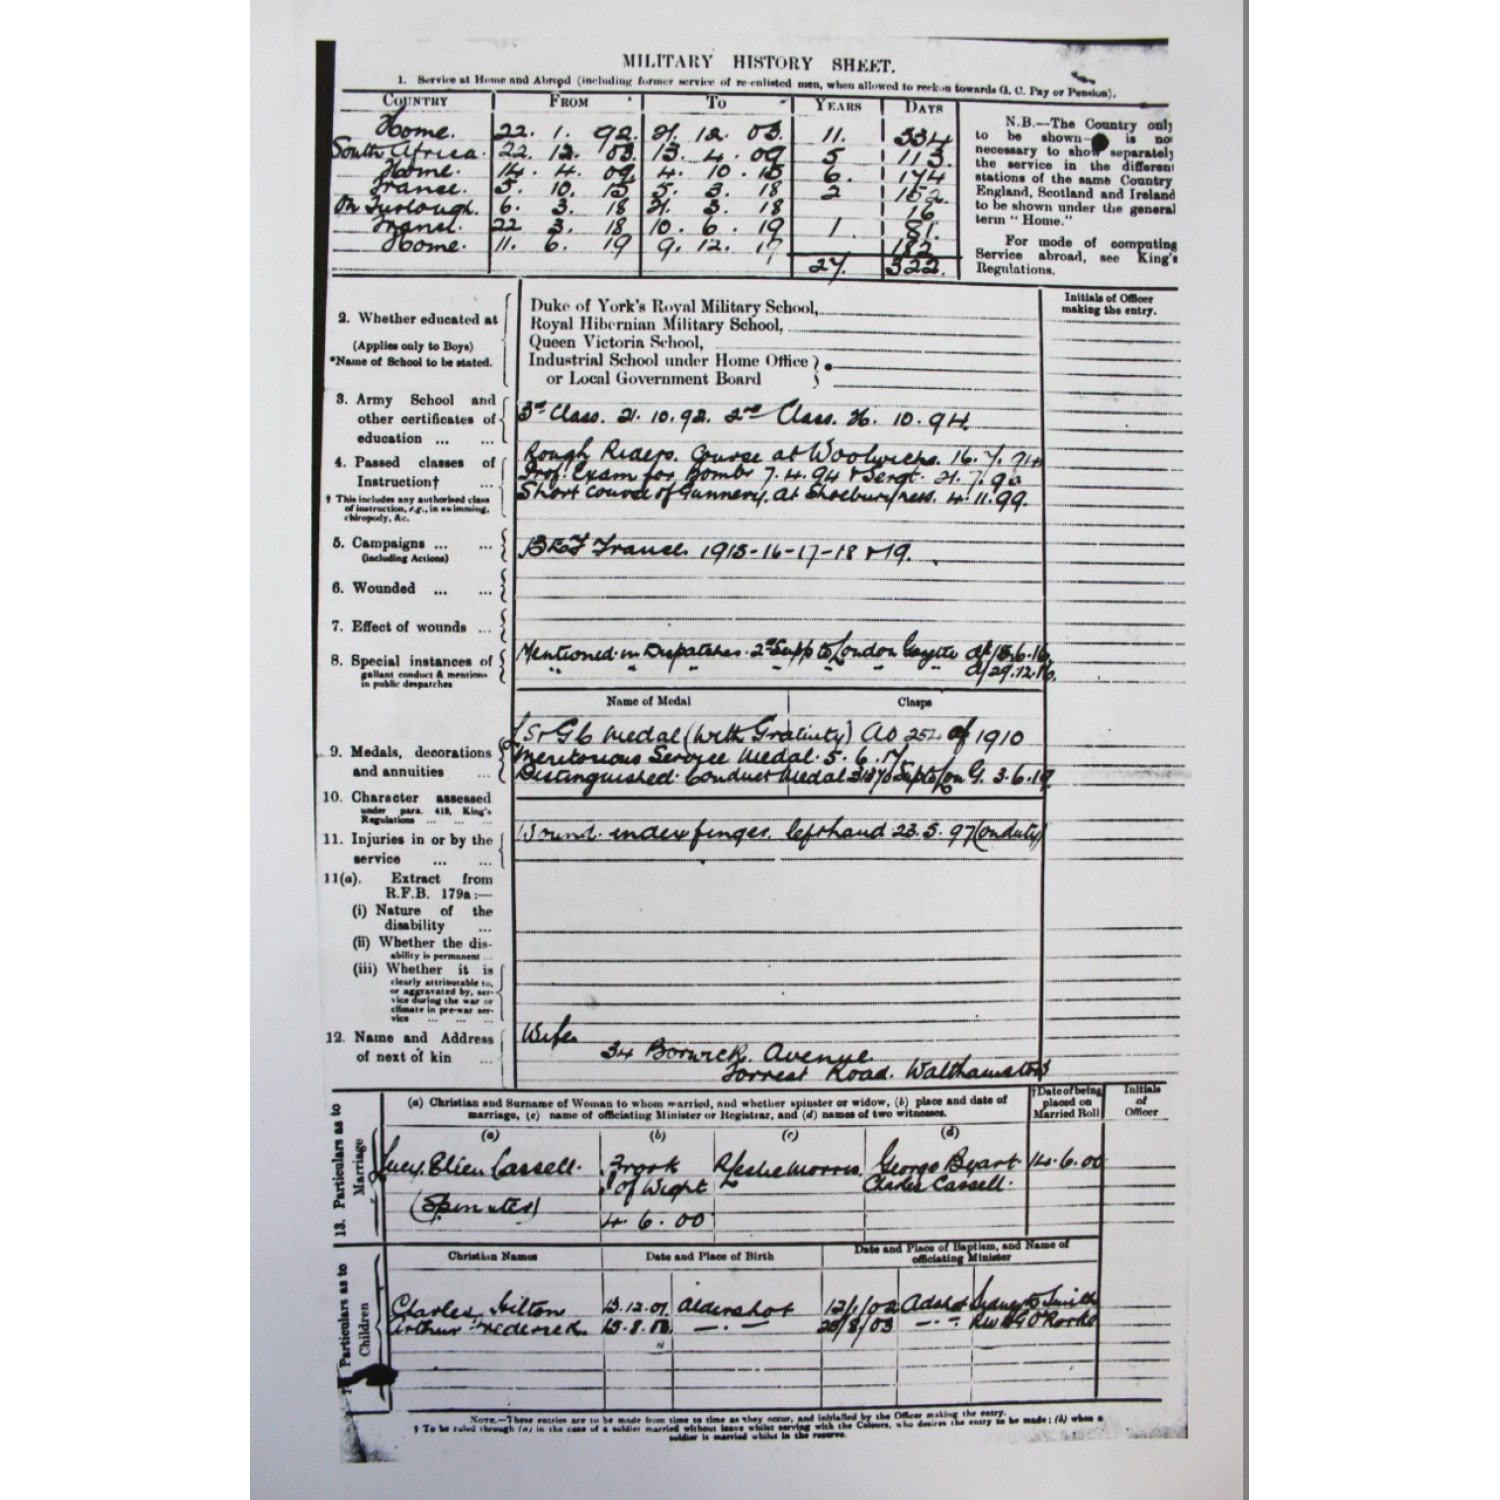 MILITARY HISTORY SHEET.
1. Service at Home and Abroad (including former service of re-enlisted men, when allowed to reckon towards G. C. Pay or Pension).
COUNTRY FROM TO YEARS DAYS
Home. 22. 1. 92. 21. 12. 03. 11. 334
South Africa. 22. 12. 03. 13. 4. 09 5 113.
Home. 14. 4. 09. 4. 10. 15 6. 174
France. 5. 10. 15 5. 3. 18 2 152
On Furlough. 6. 3. 18 21. 3. 18 16
France. 22 3. 18 10. 6. 19 1. 81.
Home. 11. 6. 19 9. 12. 19 182
27. 322.
N.B.—The Country only
to be shown is no
necessary to show separately
the service in the different
stations of the same Country
England, Scotland and Ireland
to be shown under the general
term "Home."
For mode of computing
Service abroad, see King's
Regulations.
Initials of Officer
making the entry.
2. Whether educated at
(Applies only to Boys)
*Name of School to be stated.
Duke of York's Royal Military School,
Royal Hibernian Military School,
Queen Victoria School,
Industrial School under Home Office
or Local Government Board
3. Army School and
other certificates of
education ... ...
3rd Class. 21. 10. 92. 2nd Class. 26. 10. 94.
4. Passed classes of
Instruction†
† This includes any authorised class
of instruction, e.g., in swimming,
chiropody, &c.
Rough Riders. Course at Woolwich. 16. 7. 94
Prof. Exam for Bombr 7. 4. 94 & Sergt. 21. 7.
Short course of Gunnery. at Shoeburyness. 4. 11. 99.
5. Campaigns ... ...
(including Actions)
BEF France. 1915-16-17-18 & 19.
6. Wounded ... ...
7. Effect of wounds ...
8. Special instances of
gallant conduct & mentions
in public despatches
Mentioned in Dispatches. 2nd Supp to London Gazette of 15.6.16.
" " " " " " of 29.12.16.
Name of Medal Clasps
9. Medals, decorations
and annuities ...
LS & GC Medal (with Gratuity) AO 252 of 1910
Meritorious Service Medal. 5. 6. 17.
Distinguished Conduct Medal Supp to Lon G. 3. 6. 19.
10. Character assessed
under para. 419, King's
Regulations ... ... ...
11. Injuries in or by the
service ... ...
Wound. index finger. left hand 23. 5. 97 (on duty)
11(a). Extract from
R.F.B. 179a:—
(i) Nature of the
disability ...
(ii) Whether the dis-
ability is permanent ...
(iii) Whether it is
clearly attributable to,
or aggravated by, ser-
vice during the war or
climate in pre-war ser-
vice ... ... ...
12. Name and Address
of next of kin ...
Wife
34 Borwick. Avenue
Forrest Road. Walthamstow
13. Particulars as to
Marriage
(a) Christian and Surname of Woman to whom married, and whether spinster or widow, (b) place and date of
marriage, (c) name of officiating Minister or Registrar, and (d) names of two witnesses.
†Date of being
placed on
Married Roll
Initials
of
Officer
(a) (b) (c) (d)
Lucy. Ellen Cassell. R Leslie Morris. George Byart 14. 6. 00
of Wight Charles Cassell.
(Spinster)
4. 6. 00
Particulars as to
Children
Christian Names Date and Place of Birth Date and Place of Baptism, and Name of
officiating Minister
Charles 13. 12. 01 Aldershot 12/1/02 Adshot Smith
Arthur Frederick. 15. 8. 03. —.— 23/8/03 —.—
NOTE.—These entries are to be made from time to time as they occur, and initialled by the Officer making the entry.
† To be ruled through (a) in the case of a soldier married without leave whilst serving with the Colours, who desires the entry to be made; (b) when a
soldier is married whilst in the reserve.